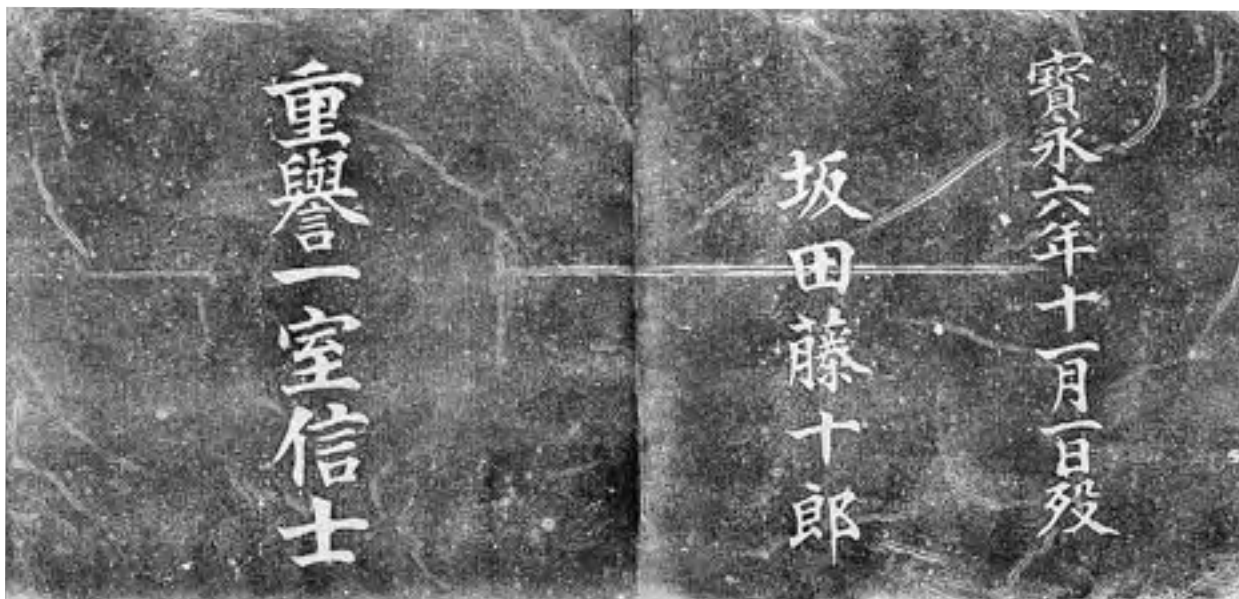 寶永六年十一月一日歿
坂田藤十郎
重譽一室信士